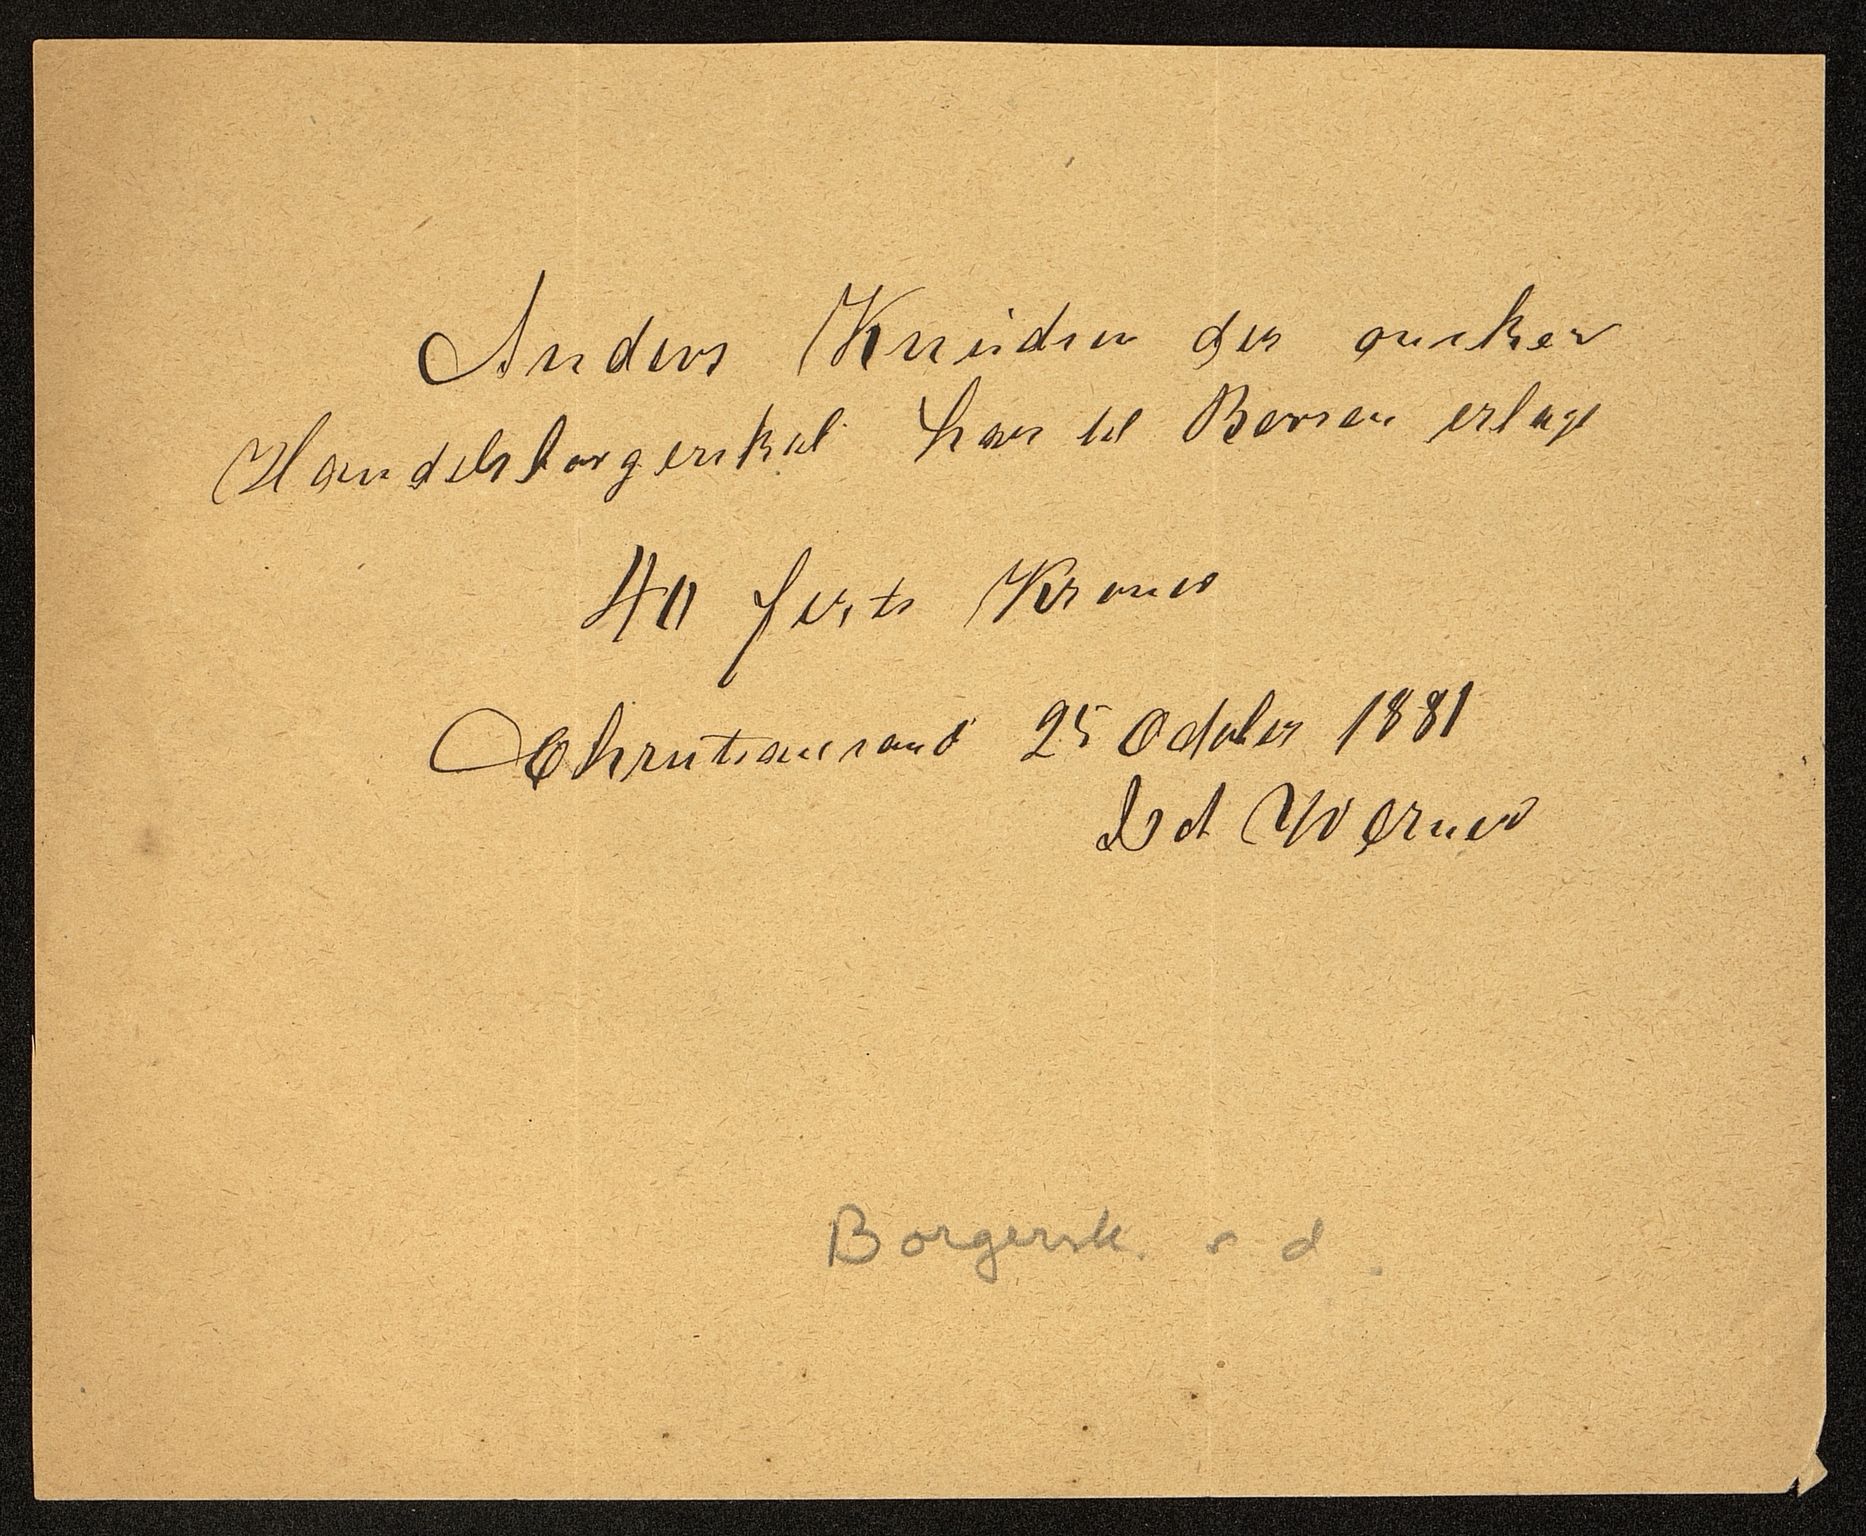 Anders Knudsen der ønsker
Handelsborgerskab har til Børsen erlagt
40 firti Kroner
Christiansand 25 October 1881
Ed Werner
Borgersk. s d.